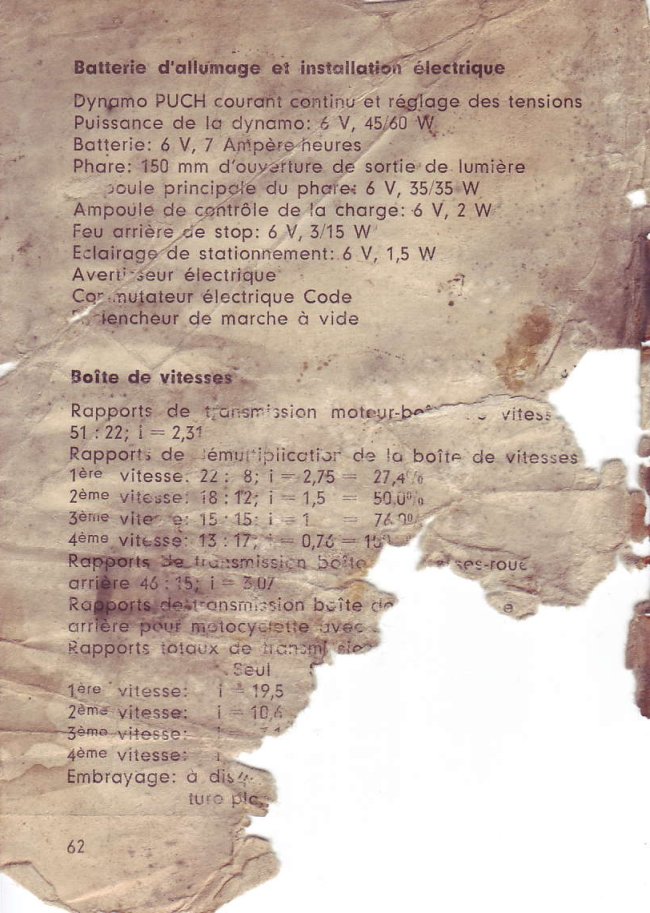 Batterie d'allumage et installation électrique
Dynamo PUCH courant continu et réglage des tensions
Puissance de la dynamo: 6 V, 45/60 W
Batterie: 6 V, 7 Ampère-heures
Phare: 150 mm d'ouverture de sortie de lumière
poule principale du phare: 6 V, 35/35 W
Ampoule de contrôle de la charge: 6 V, 2 W
Feu arrière de stop: 6 V, 3/15 W
Eclairage de stationnement: 6 V, 1,5 W
Avertisseur électrique
Commutateur électrique Code
lencheur de marche à vide
Boîte de vitesses
Rapports de transmission moteur-boî vitess
51 : 22; i = 2,31
Rapports de démultiplication de la boîte de vitesses
1ère vitesse: 22 : 8; i = 2,75 = 27,4%
2ème vitesse: 18 : 12; i = 1,5 = 50,0%
3ème vitesse: 15 : 15; i = 1 = 76,0%
4ème vitesse: 13 : 17; i = 0,76 =
Rapports de transmission boîte sses-roue
arrière 46 : 15; i = 3,07
Rapports de transmission boîte de
arrière pour motocyclette avec
Rapports totaux de transmission
Seul
1ère vitesse: i = 19,5
2ème vitesse: i = 10,6
3ème vitesse: i
4ème vitesse: i
Embrayage: à dis
62